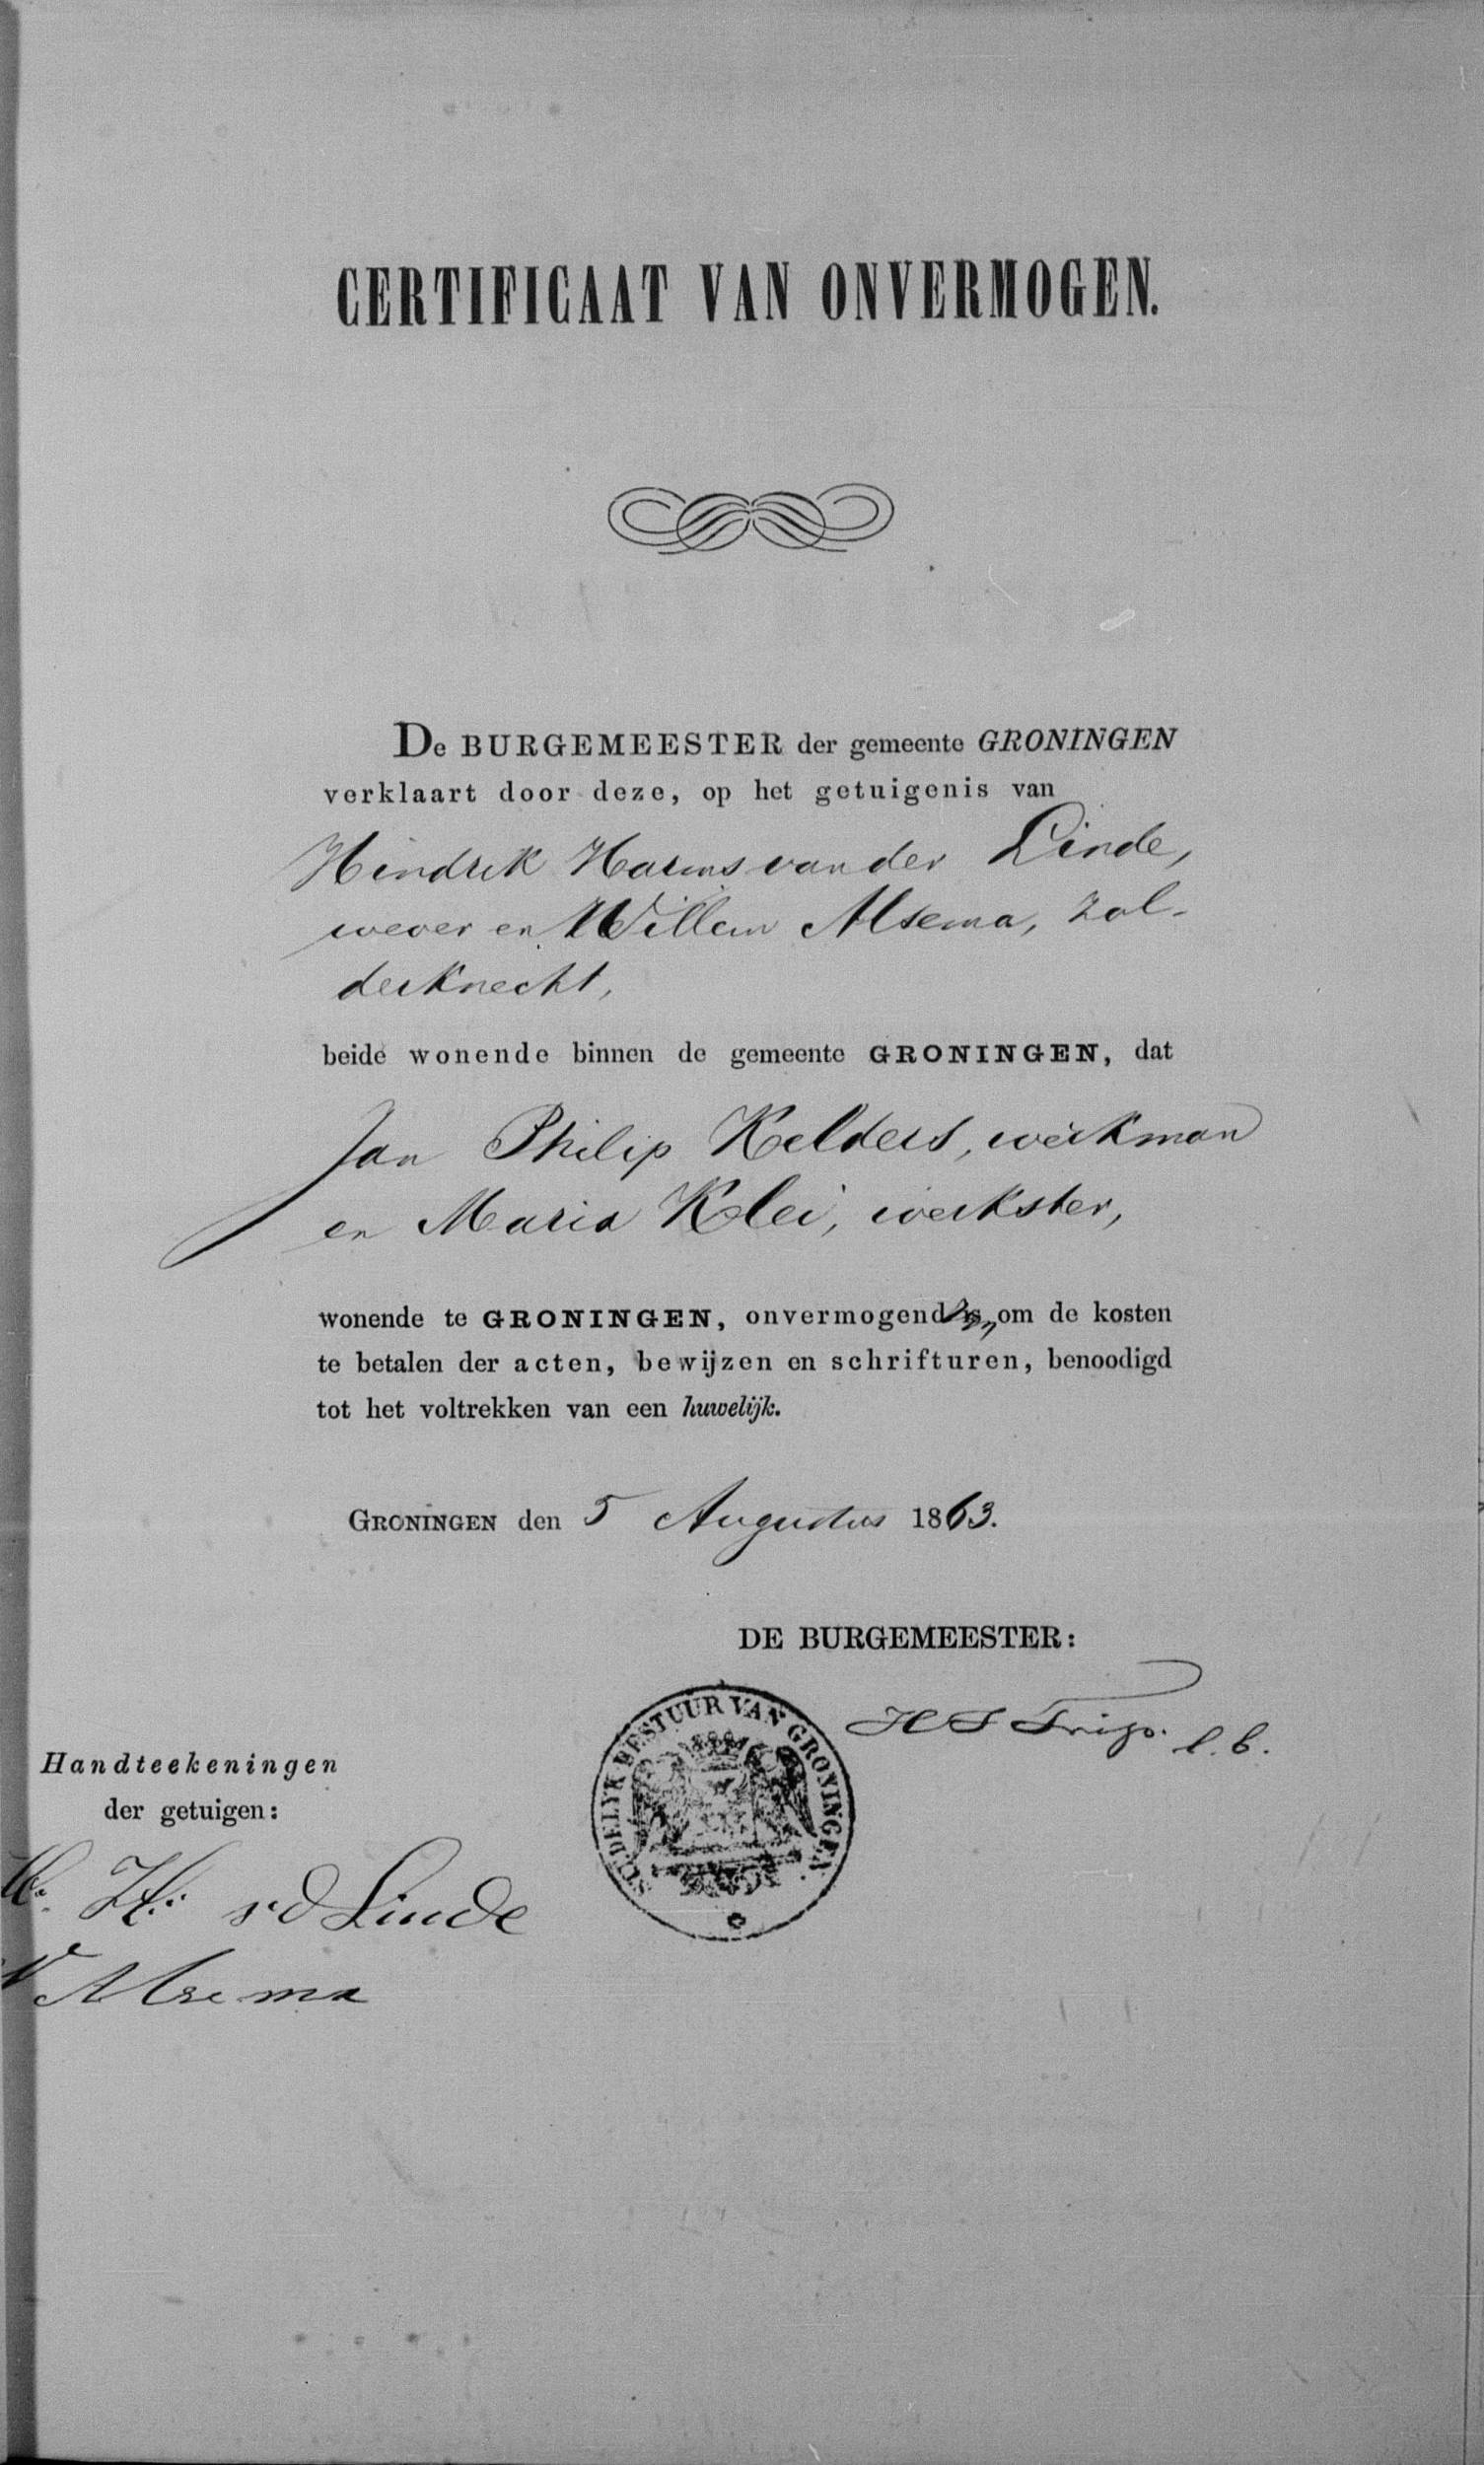 CERTIFICAAT VAN ONVERMOGEN.
De BURGEMEESTER der gemeente GRONINGEN
verklaart door deze, op het getuigenis van
Hindrik Harms van der Linde,
wever en Willem Alsema, zol-
derknecht,
beide wonende binnen de gemeente GRONINGEN, dat
Jan Philip Kelders, werkman
en Maria Klei, werkster,
wonende te GRONINGEN, onvermogend zijn om de kosten
te betalen der acten, bewijzen en schrifturen, benoodigd
tot het voltrekken van een huwelijk.
GRONINGEN den 5 Augustus 1863.
DE BURGEMEESTER:
l. b.
STEDELYK BESTUUR VAN GRONINGEN.
Handteekeningen
der getuigen:
H: H: v d Linde
W Alsema